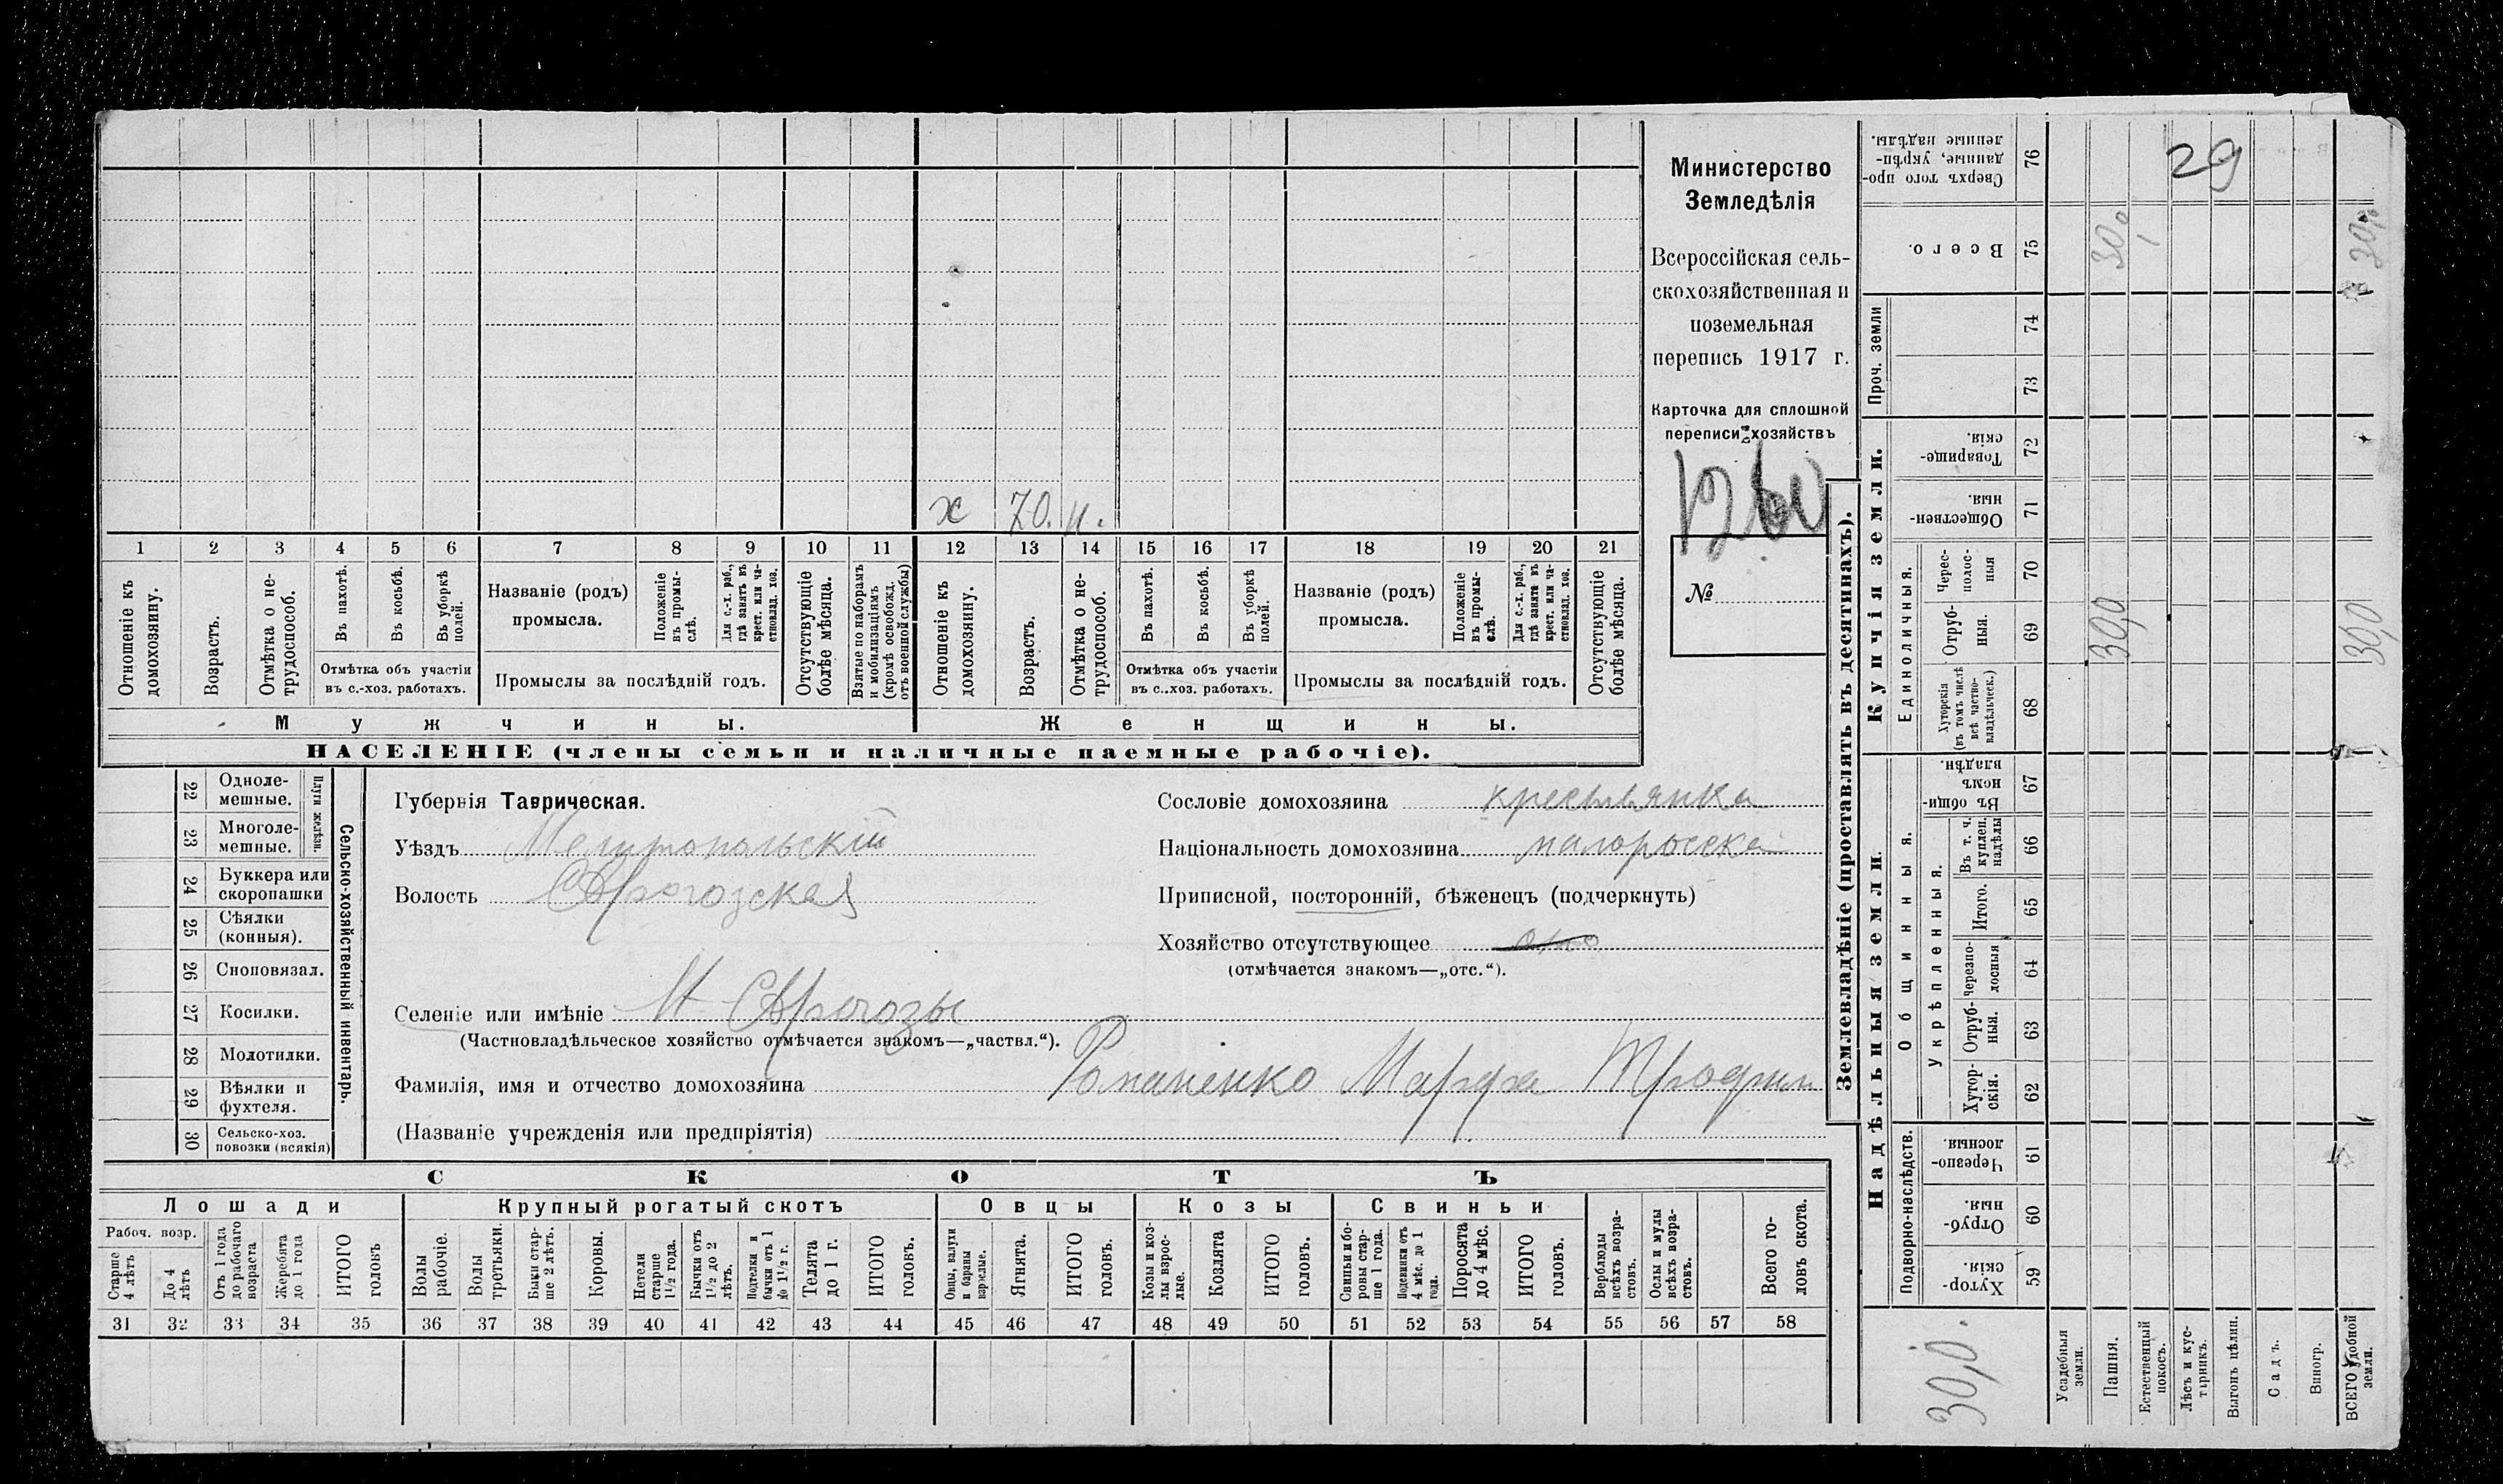 х 70. н.
1 2 3 4 5 6 7 8 9 10 11 12 13 14 15 16 17 18 19 20 21
Отношеніе къ домохозяину.
Возрастъ.
Отмѣтка о нетрудоспособ.
Въ пахотѣ.
Въ косьбѣ.
Въ уборкѣ полей.
Отмѣтка объ участіи
въ с.-хоз. работахъ.
Названіе (родъ)
промысла.
Положеніе въ промыслѣ.
Для с.-х. раб., гдѣ занятъ въ крест. или частновлад. хоз.
Промыслы за послѣдній годъ.
Отсутствующіе болѣе мѣсяца.
Взятые по наборамъ и мобилизаціямъ (кромѣ освобожд. отъ военной службы)
Отношеніе къ домохозяину.
Возрастъ.
Отмѣтка о нетрудоспособ.
Въ пахотѣ.
Въ косьбѣ.
Въ уборкѣ полей.
Отмѣтка объ участіи
въ с..хоз. работахъ.
Названіе (родъ)
промысла.
Положеніе въ промыслѣ.
Для с.-х. раб., гдѣ занята въ крест. или частновлад. хоз.
Промыслы за послѣдній годъ.
Отсутствующіе болѣе мѣсяца.
Мужчины.
Женщины.
НАСЕЛЕНІЕ (члены семьи и наличные наемные рабочіе).
Министерство
Земледѣлія
Всероссійская сель-
скохозяйственная и
поземельная
перепись 1917 г.
Карточка для сплошной
переписи хозяйствъ
№
22 Одноле-
мешные.
23 Многоле-
мешные.
Плуги желѣзн.
24 Буккера или
скоропашки
25 Сѣялки
(конныя).
26 Сноповязал.
27 Косилки.
28 Молотилки.
29 Вѣялки и
фухтеля.
30 Сельско-хоз.
повозки (всякія)
Сельско-хозяйственный инвентарь.
Губернія Таврическая.
Уѣздъ Мелитопольскій
Волость
Сословіе домохозяина крестьянка
Національность домохозяина малоросска
Приписной, посторонній, бѣженецъ (подчеркнуть)
Хозяйство отсутствующее
(отмѣчается знакомъ—„отс.“).
Селеніе или имѣніе
(Частновладѣльческое хозяйство отмѣчается знакомъ—„частвл.“).
Фамилія, имя и отчество домохозяина Романенко Марфа
(Названіе учрежденія или предпріятія)
СКОТЪ
Лошади
Крупный рогатый скотъ
Овцы
Козы
Свиньи
Рабоч. возр.
Старше 4 лѣтъ
До 4 лѣтъ
Отъ 1 года до рабочаго возраста
Жеребята до 1 года
ИТОГО головъ
Волы рабочіе.
Волы третьяки.
Быки старше 2 лѣтъ.
Коровы.
Нетели старше 1½ года.
Бычки отъ 1½ до 2 лѣтъ.
Подтелки и бычки отъ 1 до 1½ г.
Телята до 1 г.
ИТОГО головъ.
Овцы, валухи и бараны взрослые.
Ягнята.
ИТОГО головъ.
Козы и козлы взрослые.
Козлята
ИТОГО головъ.
Свиньи и боровы старше 1 года.
Подсвинки отъ 4 мѣс. до 1 года.
Поросята до 4 мѣс.
ИТОГО головъ.
Верблюды всѣхъ возрастовъ.
Ослы и мулы всѣхъ возрастовъ.
Всего головъ скота.
31 32 33 34 35 36 37 38 39 40 41 42 43 44 45 46 47 48 49 50 51 52 53 54 55 56 57 58
Землевладѣніе (проставлять въ десятинахъ).
Надѣльныя земли.
Купчія земли.
Проч. земли
Подворно-наслѣдств.
Общинныя.
Укрѣпленныя.
Единоличныя.
Хуторскія. 59
Отрубныя. 60
Черезполосныя. 61
Хуторскія. 62
Отрубныя. 63
Черезполосныя 64
Итого. 65
Въ т. ч. куплен. надѣлы 66
Въ общинномъ владѣн. 67
Хуторскія (въ томъ числѣ всѣ частновладѣльческ.) 68
Отрубныя. 69
Чересполосныя 70
Общественныя. 71
Товарищескія. 72
73
74
Всего. 75
Сверхъ того проданные, укрѣпленные надѣлы. 76
29
30,0
30,0
30,0
30,0
30,0.
Усадебныя земли.
Пашня.
Естественный покосъ.
Лѣсъ и кустарникъ.
Выгонъ цѣлин.
Садъ.
Виногр.
ВСЕГО удобной земли.